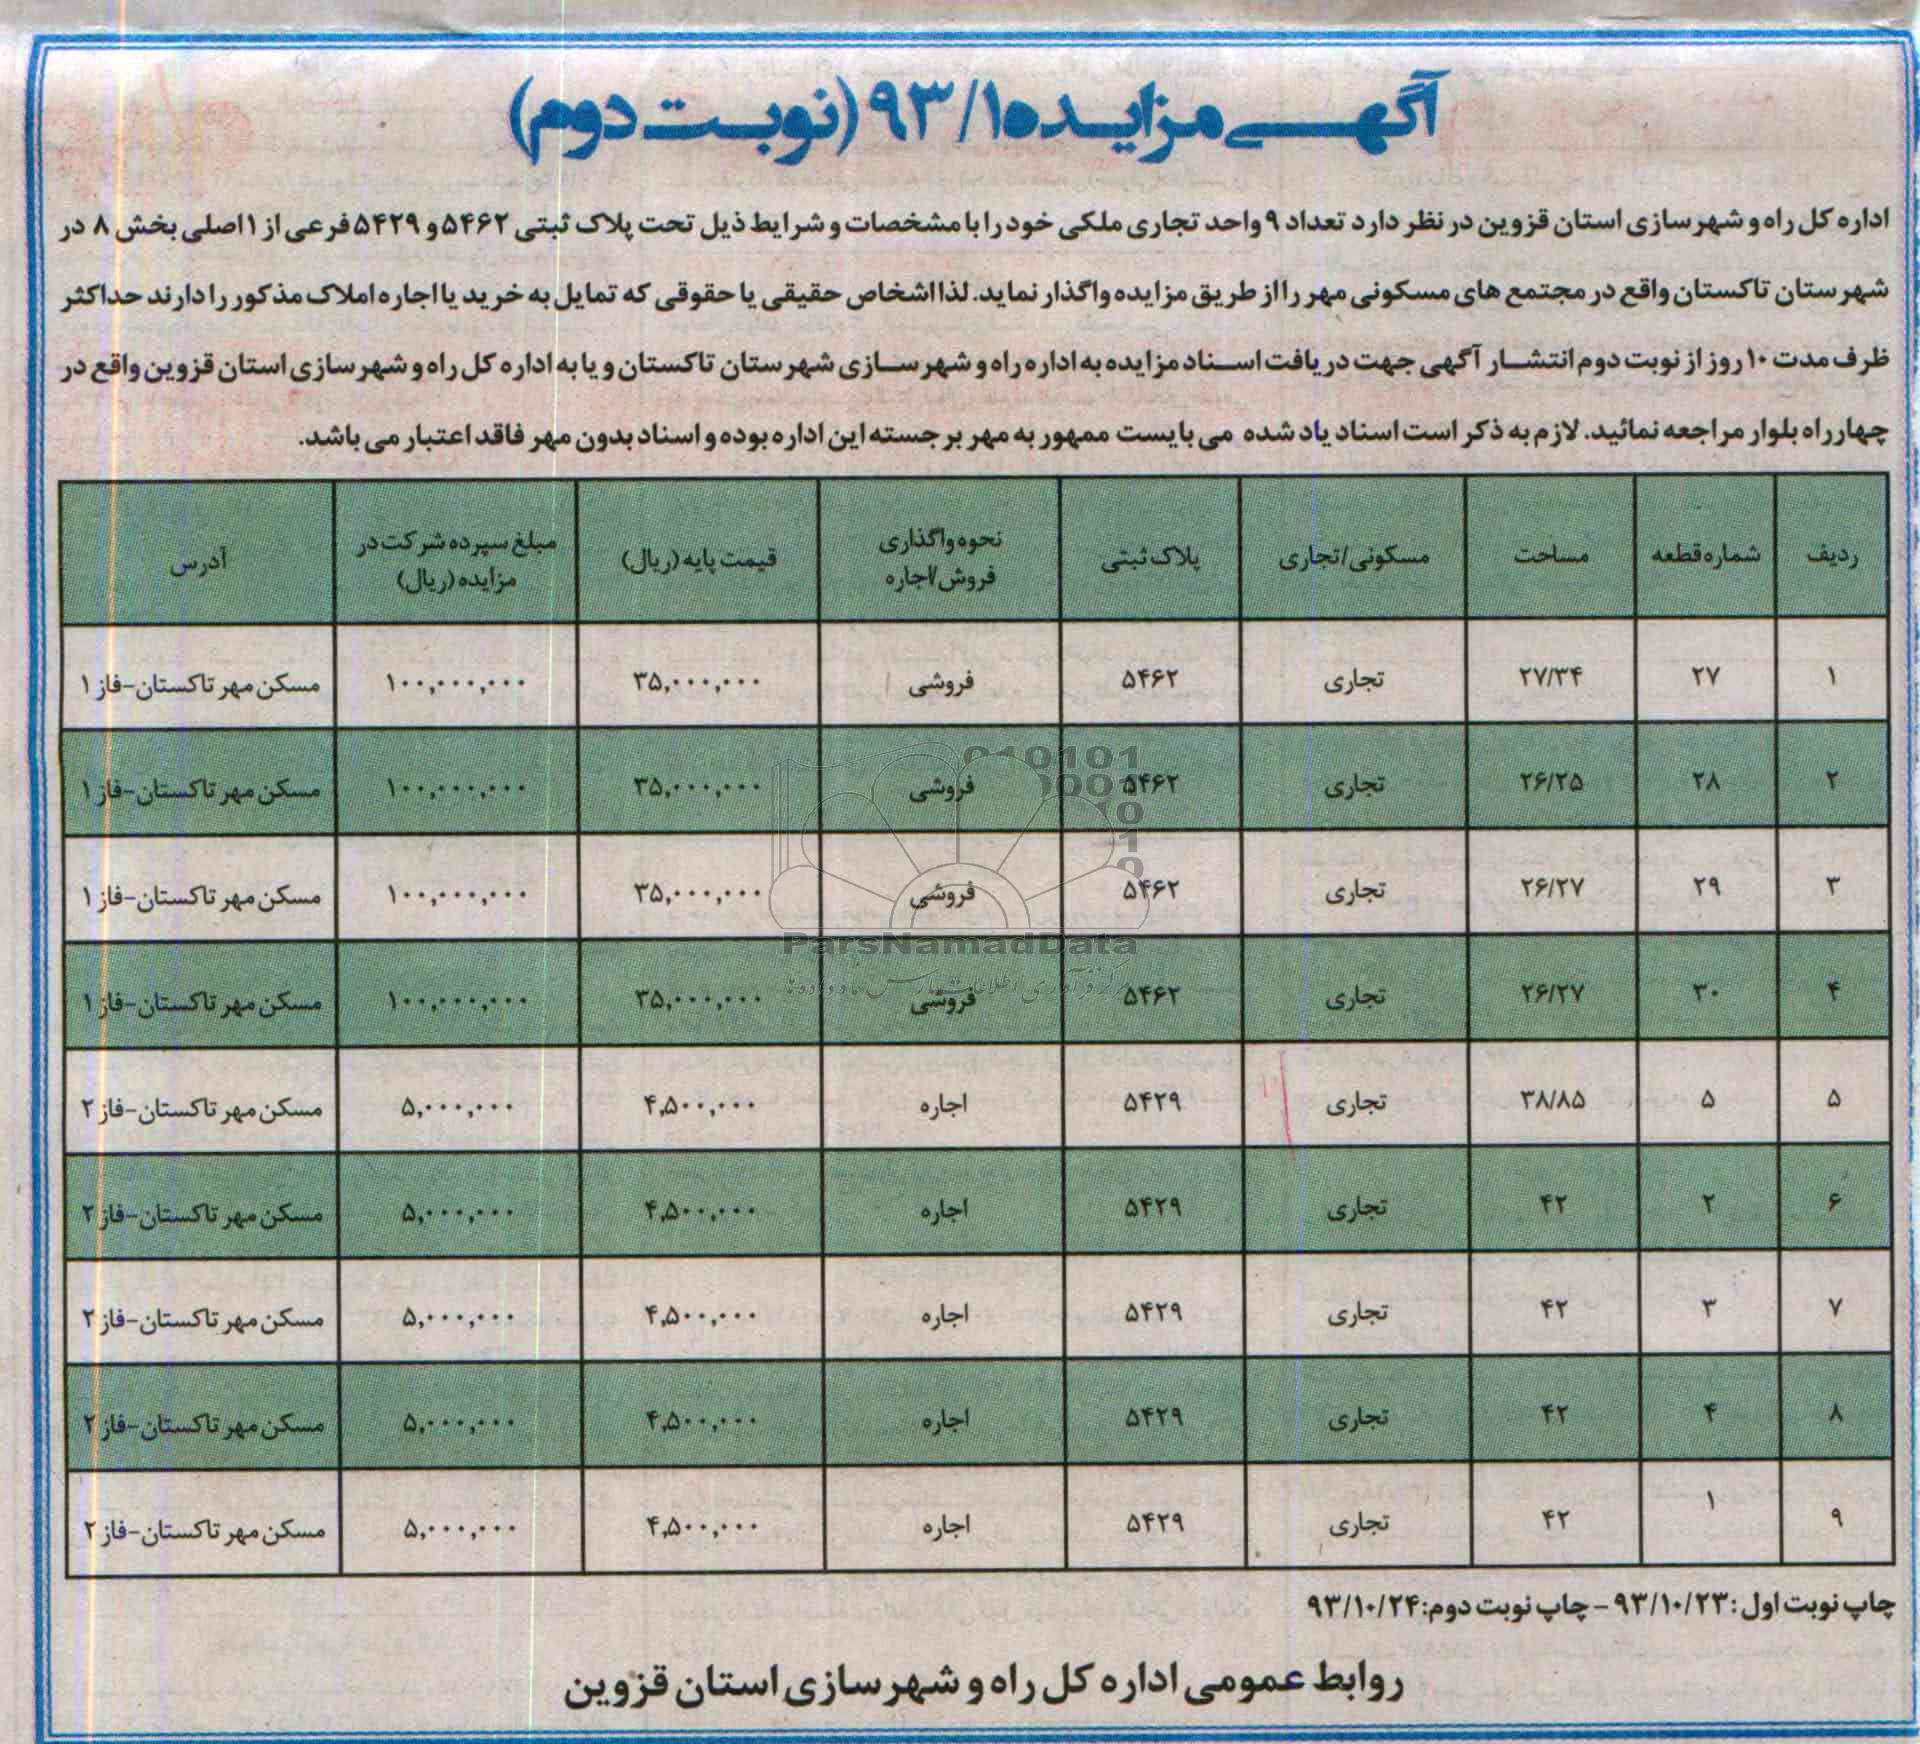 آگهی مزایده ۹۳/۱ (نوبت دوم)
اداره کل راه و شهرسازی استان قزوین در نظر دارد تعداد ۹ واحد تجاری ملکی خود را با مشخصات و شرایط ذیل تحت پلاک ثبتی ۵۴۶۲ و ۵۴۲۹ فرعی از ۱ اصلی بخش ۸ در
شهرستان تاکستان واقع در مجتمع های مسکونی مهر را از طریق مزایده واگذار نماید. لذا اشخاص حقیقی یا حقوقی که تمایل به خرید یا اجاره املاک مذکور را دارند حداکثر
ظرف مدت ۱۰ روز از نوبت دوم انتشار آگهی جهت دریافت اسناد مزایده به اداره راه و شهرسازی شهرستان تاکستان و یا به اداره کل راه و شهرسازی استان قزوین واقع در
چهارراه بلوار مراجعه نمائید. لازم به ذکر است اسناد یاد شده می بایست ممهور به مهر برجسته این اداره بوده و اسناد بدون مهر فاقد اعتبار می باشد.
ردیف شماره قطعه مساحت مسکونی/تجاری پلاک ثبتی نحوه واگذاری فروش/اجاره قیمت پایه (ریال) مبلغ سپرده شرکت در مزایده (ریال) آدرس
۱ ۲۷ ۲۷/۳۴ تجاری ۵۴۶۲ فروشی ۳۵,۰۰۰,۰۰۰ ۱۰۰,۰۰۰,۰۰۰ مسکن مهر تاکستان-فاز ۱
۲ ۲۸ ۲۶/۲۵ تجاری ۵۴۶۲ فروشی ۳۵,۰۰۰,۰۰۰ ۱۰۰,۰۰۰,۰۰۰ مسکن مهر تاکستان-فاز ۱
۳ ۲۹ ۲۶/۲۷ تجاری ۵۴۶۲ فروشی ۳۵,۰۰۰,۰۰۰ ۱۰۰,۰۰۰,۰۰۰ مسکن مهر تاکستان-فاز ۱
۴ ۳۰ ۲۶/۲۷ تجاری ۵۴۶۲ فروشی ۳۵,۰۰۰,۰۰۰ ۱۰۰,۰۰۰,۰۰۰ مسکن مهر تاکستان-فاز ۱
۵ ۵ ۳۸/۸۵ تجاری ۵۴۲۹ اجاره ۴,۵۰۰,۰۰۰ ۵,۰۰۰,۰۰۰ مسکن مهر تاکستان-فاز ۲
۶ ۲ ۴۲ تجاری ۵۴۲۹ اجاره ۴,۵۰۰,۰۰۰ ۵,۰۰۰,۰۰۰ مسکن مهر تاکستان-فاز ۲
۷ ۳ ۴۲ تجاری ۵۴۲۹ اجاره ۴,۵۰۰,۰۰۰ ۵,۰۰۰,۰۰۰ مسکن مهر تاکستان-فاز ۲
۸ ۴ ۴۲ تجاری ۵۴۲۹ اجاره ۴,۵۰۰,۰۰۰ ۵,۰۰۰,۰۰۰ مسکن مهر تاکستان-فاز ۲
۹ ۱ ۴۲ تجاری ۵۴۲۹ اجاره ۴,۵۰۰,۰۰۰ ۵,۰۰۰,۰۰۰ مسکن مهر تاکستان-فاز ۲
ParsNamadData
چاپ نوبت اول: ۹۳/۱۰/۲۳ - چاپ نوبت دوم: ۹۳/۱۰/۲۴
روابط عمومی اداره کل راه و شهرسازی استان قزوین